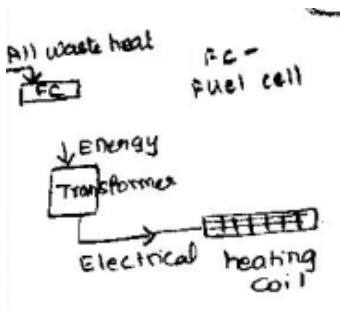 All waste heat
FC
FC -
Fuel cell
Energy
Transformer
Electrical
heating
coil